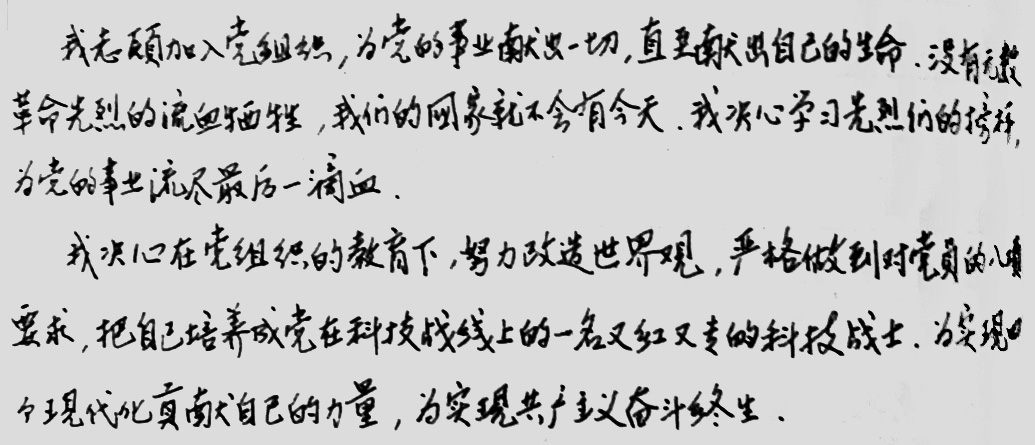 我志愿加入党组织,为党的事业献出一切,直至献出自己的生命.没有无数
革命先烈的流血牺牲,我们的国家就不会有今天.我决心学习先烈们的榜样,
为党的事业流尽最后一滴血.
我决心在党组织的教育下,努力改造世界观,严格做到对党员的八项
要求,把自己培养成党在科技战线上的一名又红又专的科技战士.为实现四
个现代化贡献自己的力量,为实现共产主义奋斗终生.